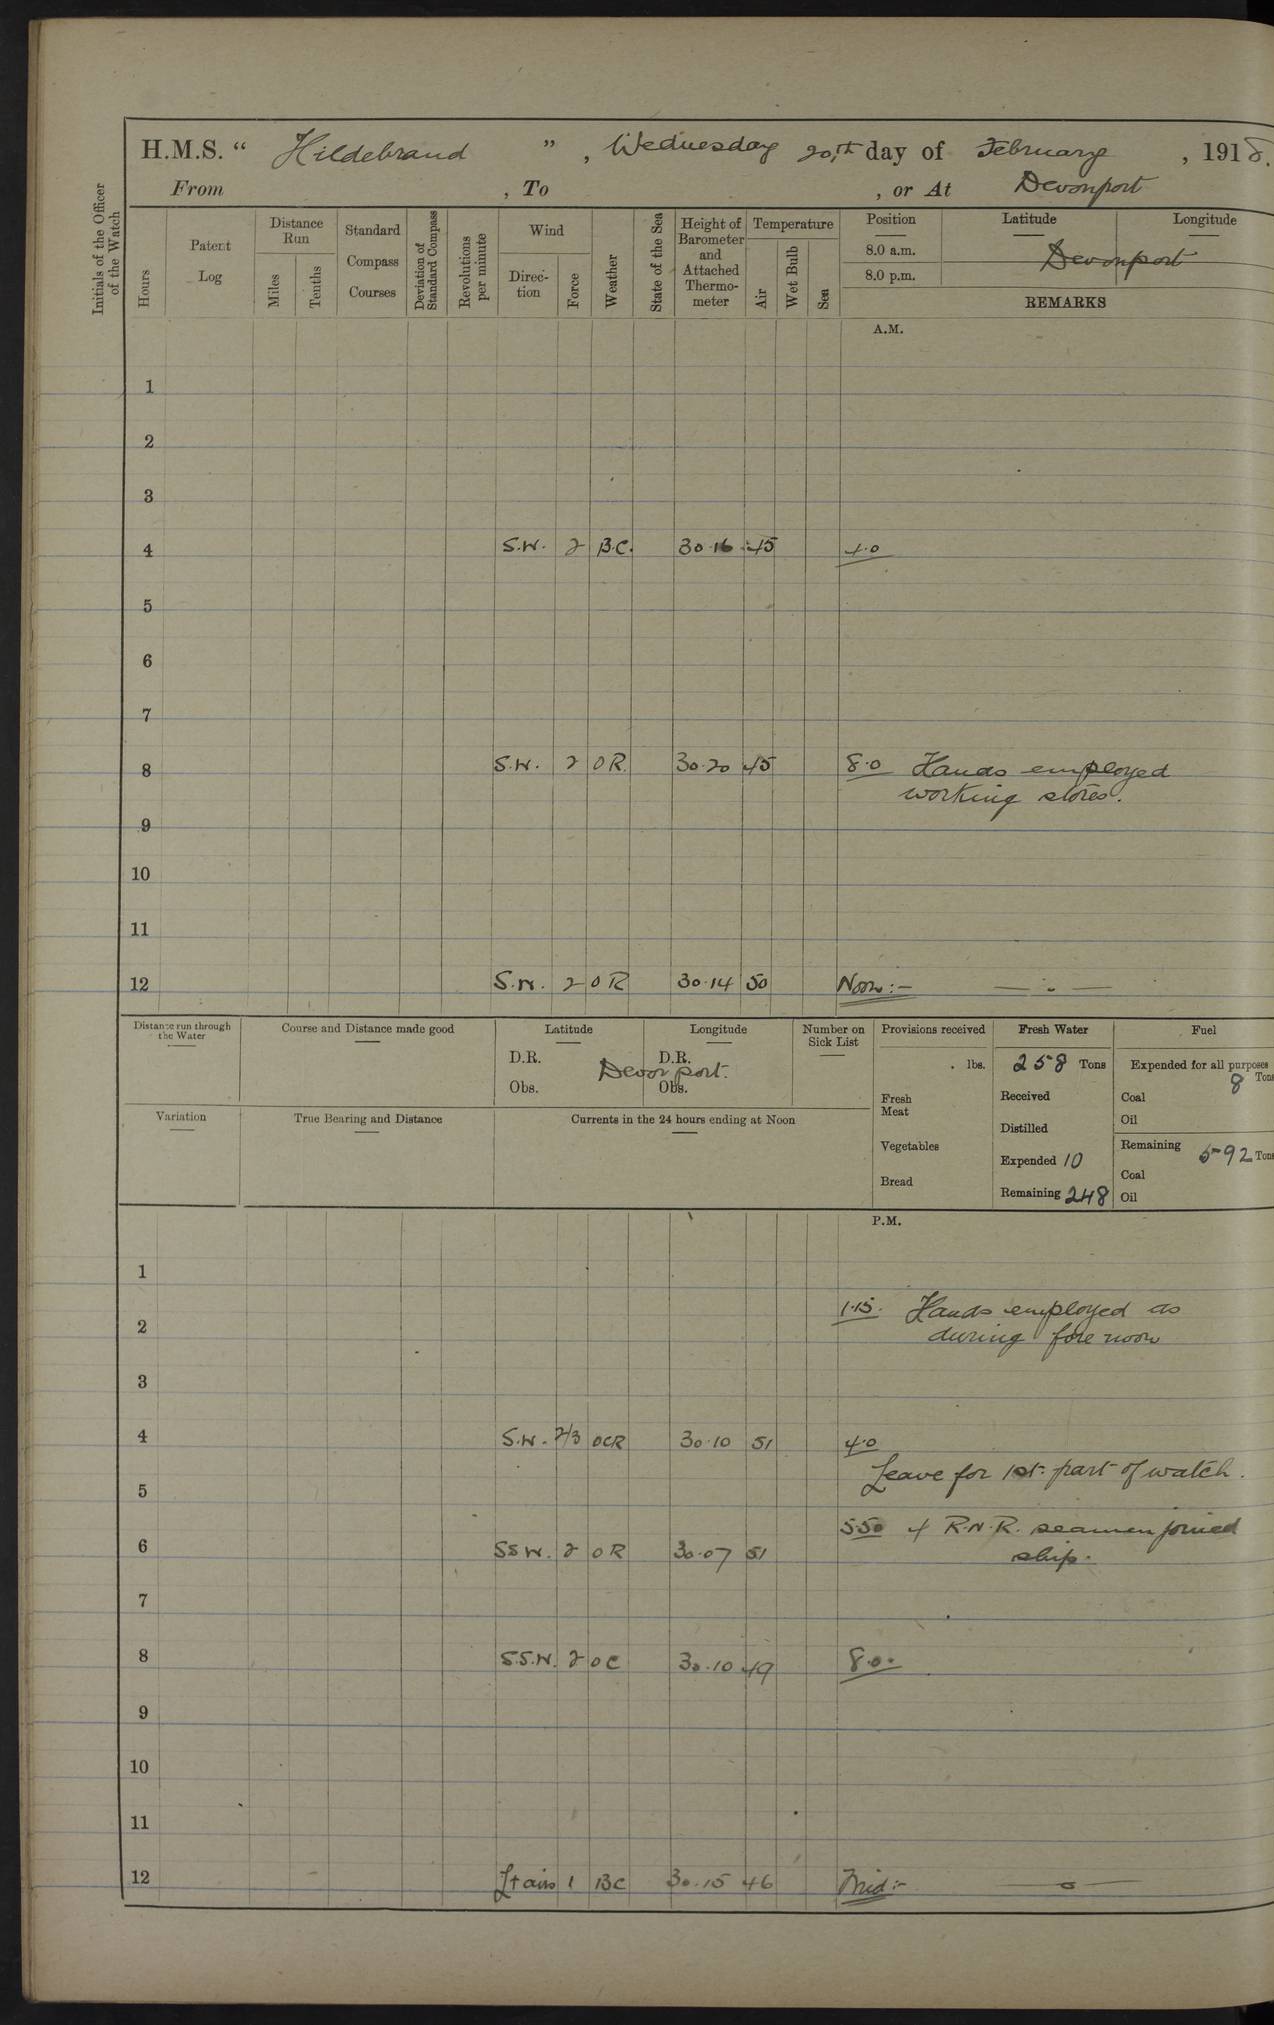 H.M.S. “ Hildebrand ” , Wednesday 20,th day of February , 1918.
From , To , or At Devonport
Initials of the Officer of the Watch
Hours
Patent Log
Distance Run
Miles
Tenths
Standard Compass Courses
Deviation of Standard Compass
Revolutions per minute
Wind
Direc-tion
Force
Weather
State of the Sea
Height of Barometer and Attached Thermo-meter
Temperature
Air
Wet Bulb
Sea
Position
8.0 a.m.
8.0 p.m.
Latitude
Longitude
Devonport
REMARKS
A.M.
1
2
3
4 S.W. 2 B.C. 30.16 45 4.0
5
6
7
8 S.W. 2 O R. 30.20 45 8.0 Hands employed
working stores.
9
10
11
12 S.W. 2 O R 30.14 50 Noon:-
Distance run through the Water
Course and Distance made good
Latitude
D.R.
Obs.
Longitude
D.R.
Obs.
Devonport.
Number on Sick List
Provisions received
lbs.
Fresh Meat
Vegetables
Bread
Fresh Water
258 Tons
Received
Distilled
Expended 10
Remaining 248
Fuel
Expended for all purposes
8 Tons
Coal
Oil
Remaining 592 Tons
Coal
Oil
Variation
True Bearing and Distance
Currents in the 24 hours ending at Noon
P.M.
1
1.15. Hands employed as
2 during fore noon
3
4 S.W. 2/3 OCR 30.10 51 4.0
Leave for 1st. part of watch.
5
5.50 4 R.N.R. seamen joined
6 SSW. 2 O R 30.07 51 ship.
7
8 S.S.W. 2 O C 30.10 49 8.0.
9
10
11
12 Lt airs 1 BC 30.15 46 Mid:-